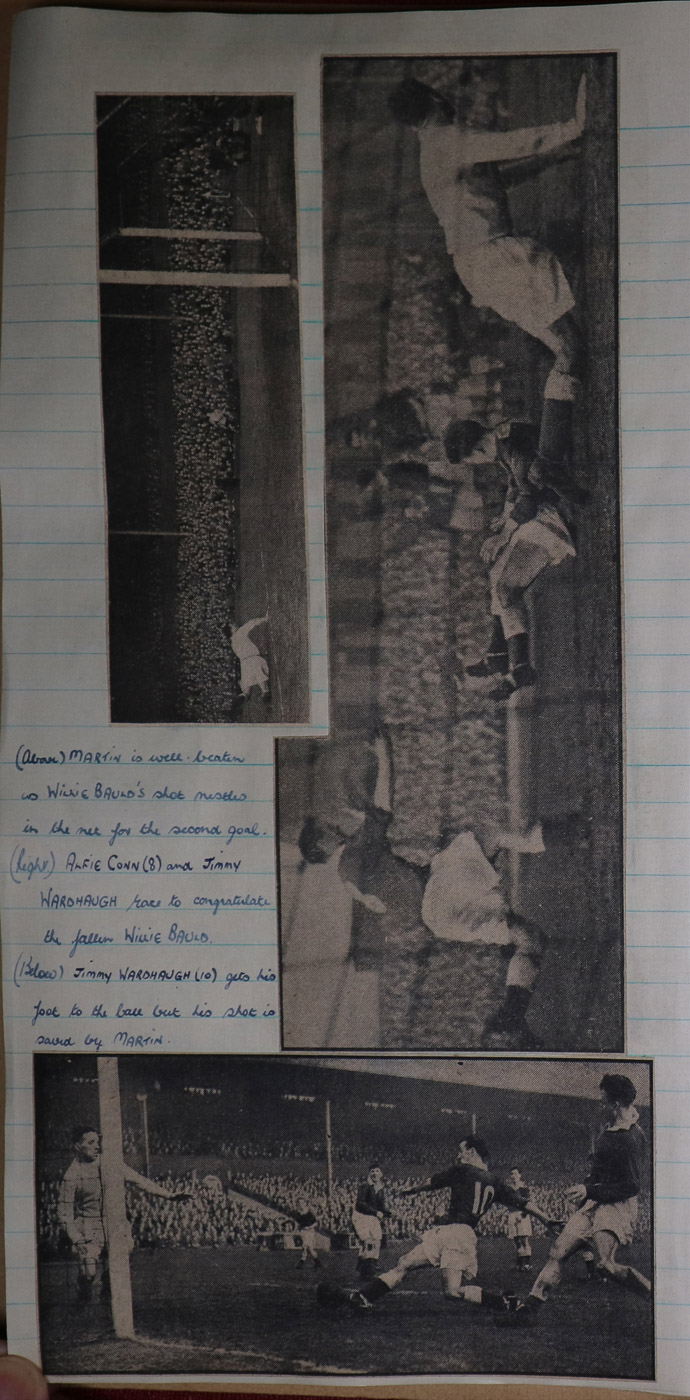 (Above) MARTIN is well beaten
as WILLIE BAULD'S shot nestles
in the net for the second goal.
(Right) ALFIE CONN (8) and JIMMY
WARDHAUGH race to congratulate
the fallen WILLIE BAULD.
(Below) JIMMY WARDHAUGH (10) gets his
foot to the ball but his shot is
saved by MARTIN.
10